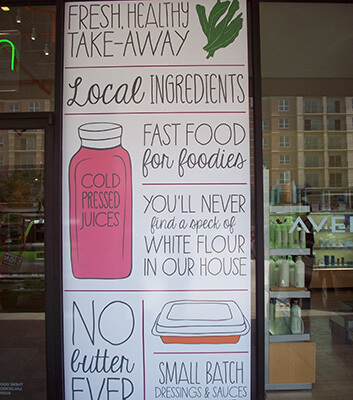 FRESH, HEALTHY
TAKE-AWAY
Local INGREDIENTS
COLD
PRESSED
JUICES
FAST FOOD
for foodies
YOU'LL NEVER
find a speck of
WHITE FLOUR
IN OUR HOUSE
NO
butter
EVER
SMALL BATCH
DRESSINGS & SAUCES
AVE